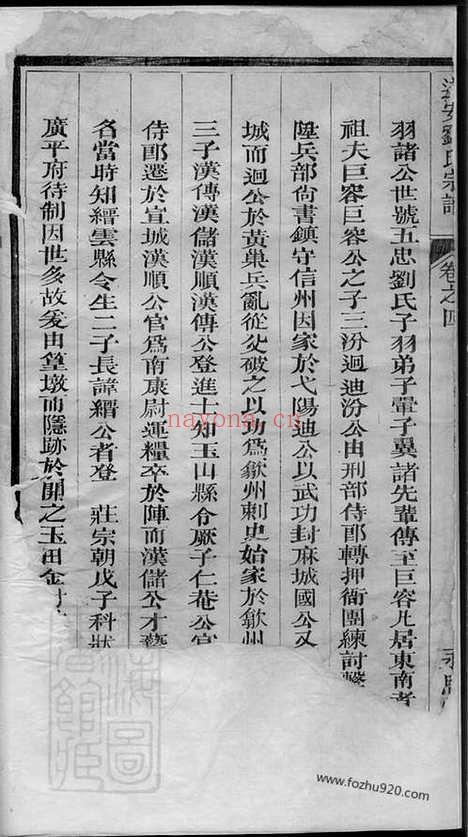 劉氏宗譜
卷之四
羽諸公世號五忠劉氏子羽弟子翬子翼諸先輩傳至巨容凡居東南者
祖夫巨容巨容公之子三汾迥迪汾公由刑部侍郎轉押衙團練討擊
陞兵部尚書鎮守信州因家於弋陽迪公以武功封麻城國公又
城而迥公於黃巢兵亂從父破之以功爲歙州刺史始家於歙州
三子漢傳漢儲漢順漢傳公登進士知玉山縣令厥子仁菴公官
侍郎遷於宜城漢順公官爲南康尉運糧卒於陣而漢儲公才藝
名當時知縉雲縣令生二子長諱縉公者登 莊宗朝戊子科狀
廣平府待制因世多故爰由篁墩而隱跡於開之玉田金村
nayona.cn
www.fozhu920.com